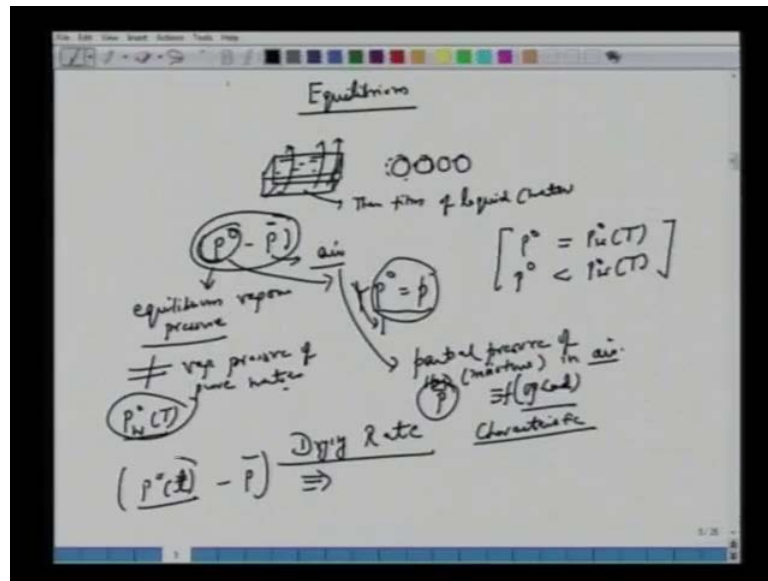 File Edit View Insert Actions Tools Help
Equilibrium
Thin film of liquid (water
(p° - p̄) air
equilibrium vapour
pressure
≠ vap pressure of
pure water
P°w(T)
p° = p̄
[ p° = P°w(T)
p° < P°w(T) ]
partial pressure of
(moisture) in air.
p̄ ≡ f(
Characteristic
Drying Rate
(p°(t) - p̄) ⇒
5/25